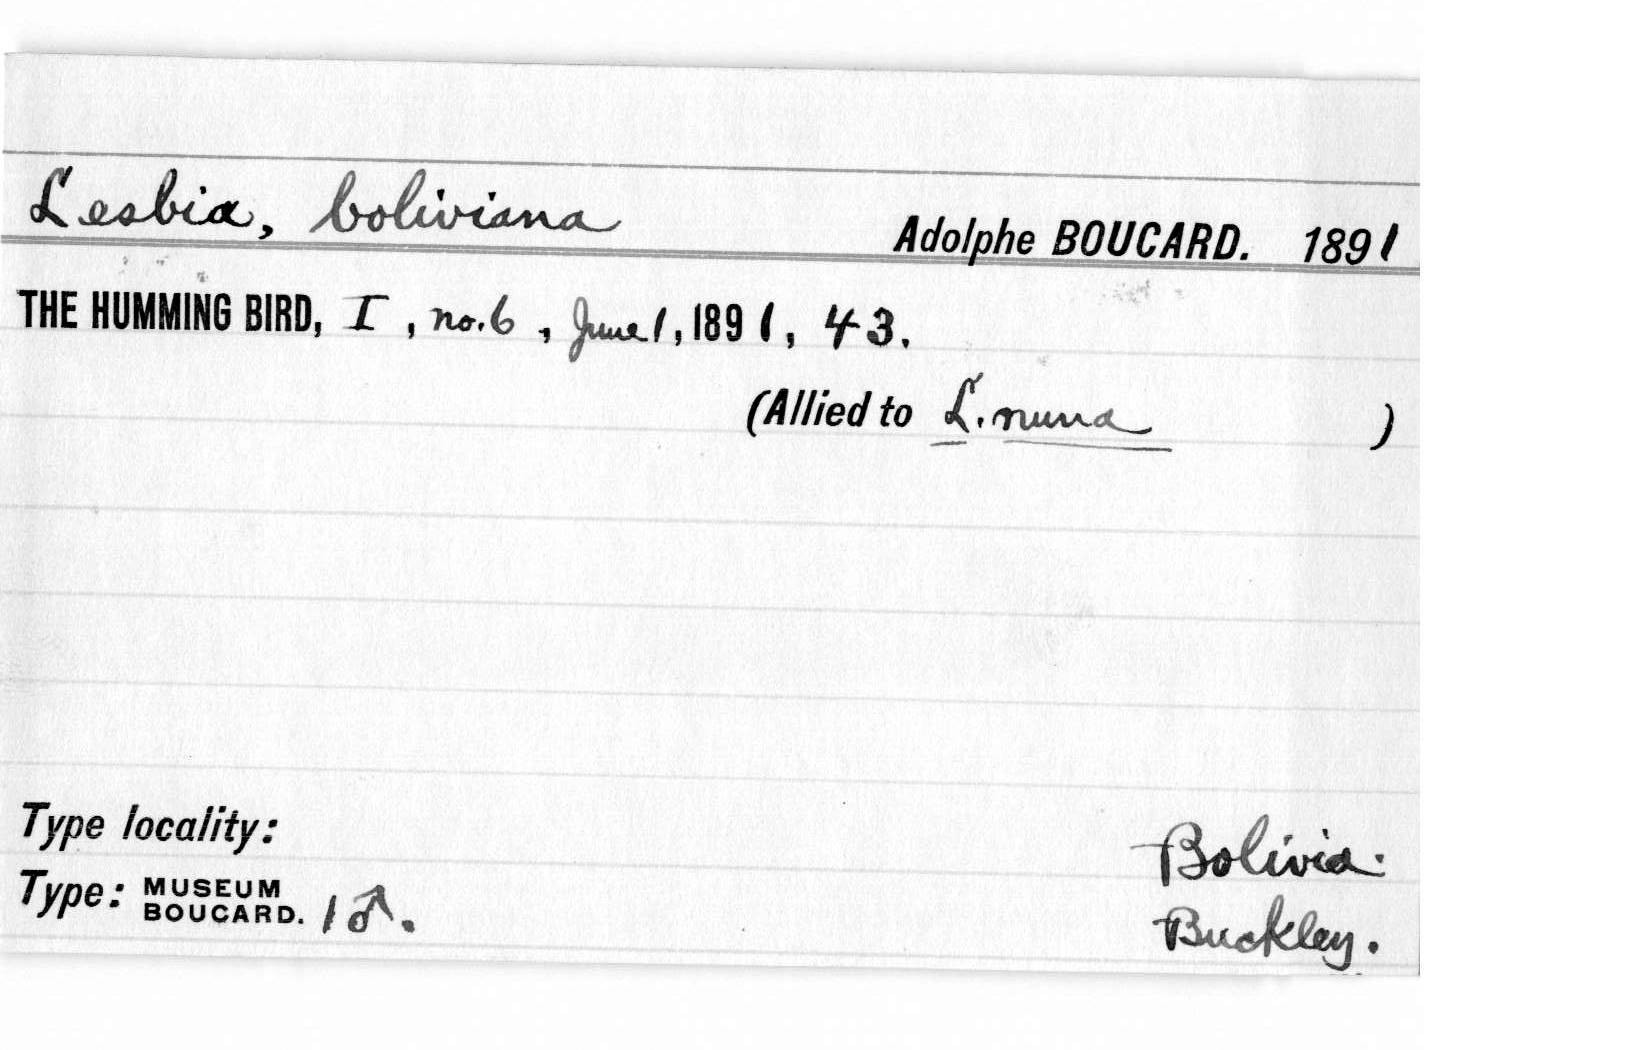 Lesbia, boliviana Adolphe BOUCARD. 1891
THE HUMMING BIRD, I, no. 6, June 1, 1891, 43.
(Allied to L. nuna )
Type locality: Bolivia.
Type: MUSEUM BOUCARD. 1♂. Buckley.